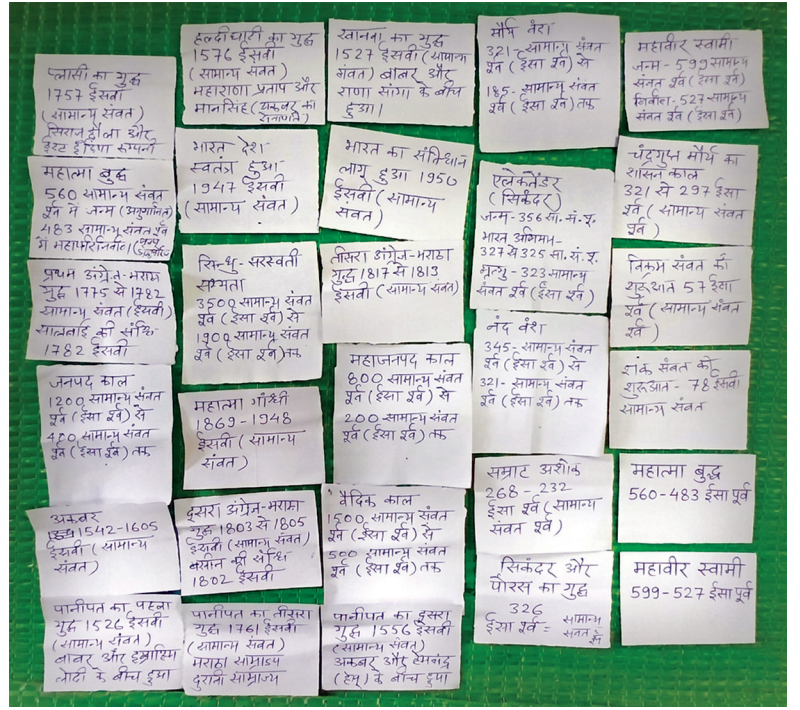 प्लासी का युद्ध
1757 ईसवी
(सामान्य संवत)
सिराजुद्दौला और
ईस्ट इंडिया कम्पनी
महात्मा बुद्ध
560 सामान्य संवत
पूर्व में जन्म (अनुमानित)
483 सामान्य संवत पूर्व
में महापरिनिर्वाण
प्रथम अंग्रेज-मराठा
युद्ध 1775 से 1782
सामान्य संवत (ईसवी)
सालबाई की संधि
1782 ईसवी
जनपद काल
1200 सामान्य संवत
पूर्व (ईसा पूर्व) से
400 सामान्य संवत
पूर्व (ईसा पूर्व) तक
अकबर
1542-1605
ईसवी (सामान्य
संवत)
पानीपत का पहला
युद्ध 1526 ईसवी
(सामान्य संवत)
बाबर और इब्राहिम
लोदी के बीच हुआ
हल्दीघाटी का युद्ध
1576 ईसवी
(सामान्य संवत)
महाराणा प्रताप और
मानसिंह (अकबर का
सेनापति)
भारत देश
स्वतंत्र हुआ
1947 ईसवी
(सामान्य संवत)
सिन्धु-सरस्वती
सभ्यता
3500 सामान्य संवत
पूर्व (ईसा पूर्व) से
1900 सामान्य संवत
पूर्व (ईसा पूर्व) तक
महात्मा गाँधी
1869-1948
ईसवी (सामान्य
संवत)
दूसरा अंग्रेज-मराठा
युद्ध 1803 से 1805
ईसवी (सामान्य संवत)
बसीन की संधि
1802 ईसवी
पानीपत का तीसरा
युद्ध 1761 ईसवी
(सामान्य संवत)
मराठा साम्राज्य
दुर्रानी साम्राज्य
खानवा का युद्ध
1527 ईसवी (सामान्य
संवत) बाबर और
राणा सांगा के बीच
हुआ।
भारत का संविधान
लागू हुआ 1950
ईसवी (सामान्य
संवत)
तीसरा अंग्रेज-मराठा
युद्ध 1817 से 1819
ईसवी (सामान्य संवत)
महाजनपद काल
800 सामान्य संवत
पूर्व (ईसा पूर्व) से
200 सामान्य संवत
पूर्व (ईसा पूर्व) तक
वैदिक काल
1500 सामान्य संवत
पूर्व (ईसा पूर्व) से
500 सामान्य संवत
पूर्व (ईसा पूर्व) तक
पानीपत का दूसरा
युद्ध 1556 ईसवी
(सामान्य संवत)
अकबर और हेमचंद्र
(हेमू) के बीच हुआ
मौर्य वंश
321- सामान्य संवत
पूर्व (ईसा पूर्व) से
185- सामान्य संवत
पूर्व (ईसा पूर्व) तक
एलेक्जेंडर
(सिकंदर)
जन्म-356 सा. सं. पू.
भारत अभियान-
327 से 325 सा. सं. पू.
मृत्यु - 323 सामान्य
संवत पूर्व (ईसा पूर्व)
नंद वंश
345- सामान्य संवत
पूर्व (ईसा पूर्व) से
321- सामान्य संवत
पूर्व (ईसा पूर्व) तक
सम्राट अशोक
268-232
ईसा पूर्व (सामान्य
संवत पूर्व)
सिकंदर और
पोरस का युद्ध
326
ईसा पूर्व = सामान्य
संवत से
महावीर स्वामी
जन्म - 599 सामान्य
संवत पूर्व (ईसा पूर्व)
निर्वाण-527-सामान्य
संवत पूर्व (ईसा पूर्व)
चंद्रगुप्त मौर्य का
शासन काल
321 से 297 ईसा
पूर्व (सामान्य संवत
पूर्व)
विक्रम संवत की
शुरुआत 57 ईसा
पूर्व (सामान्य संवत
पूर्व)
शक संवत की
शुरुआत - 78 ईसवी
सामान्य संवत
महात्मा बुद्ध
560-483 ईसा पूर्व
महावीर स्वामी
599-527 ईसा पूर्व